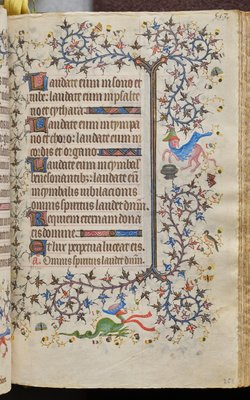 Laudate eum in sono et
tube: laudate eum in psalte
rio et cythara.
Laudate eum in tympa
no et choro: laudate eum in
cordis et organo
Laudate eum in cymbal
benesonantibus: laudate eum
in cymbalis iubilacionis
omnis spiritus laudet dnm.
Requiem eternam dona
eis domine.
Et lux perpetua luceat eis.
A. Omnis spiritus laudet dnm.